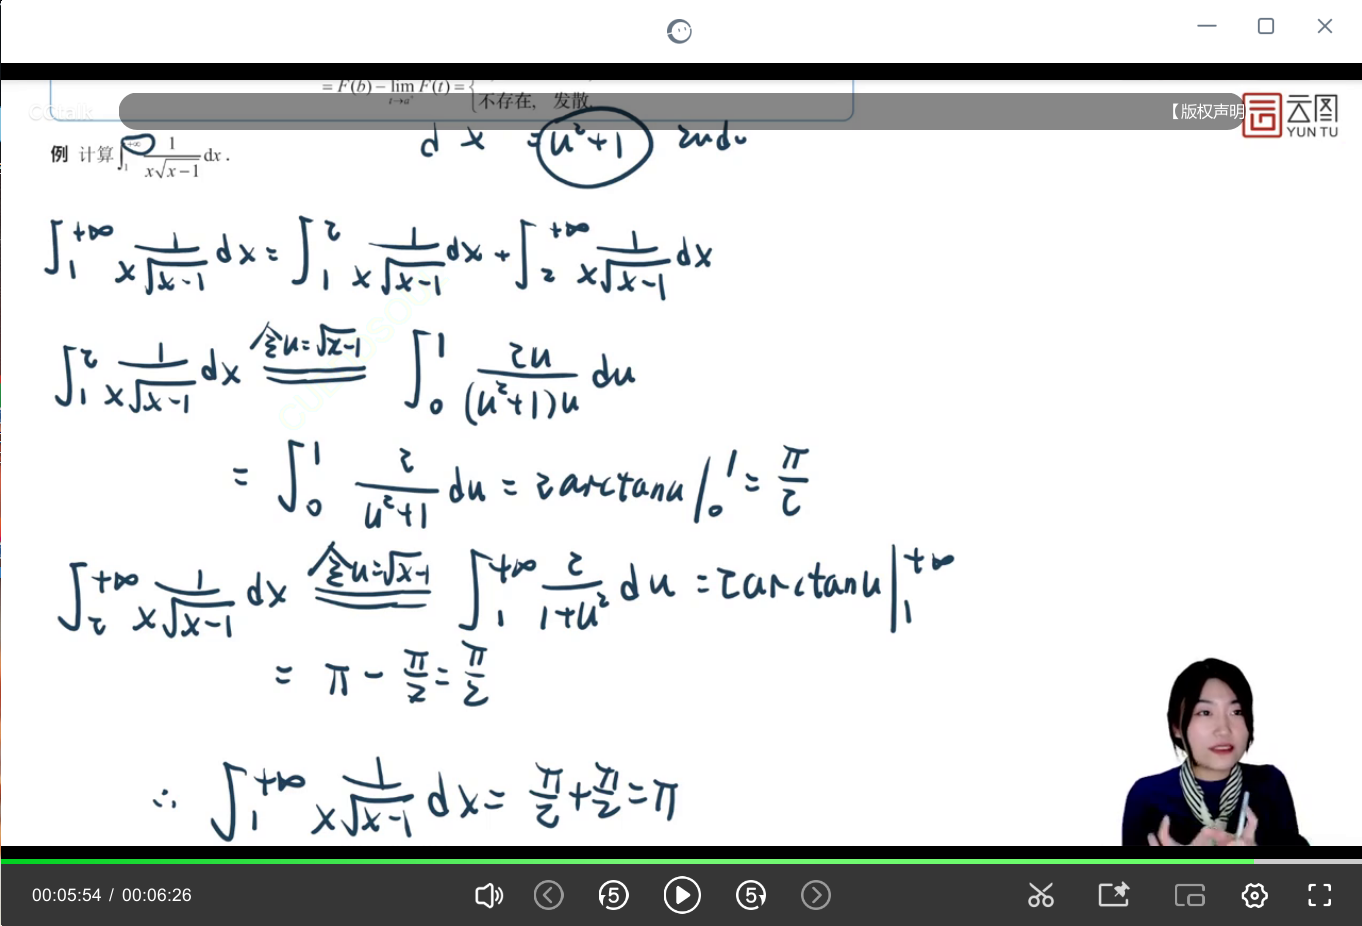 = F(b) − lim F(t) = {
t→a⁺
不存在, 发散.
CCtalk
【版权声明
云图
YUN TU
d x = u²+1 2udu
例 计算∫₁^{+∞} 1/(x√(x−1)) dx .
∫₁^{+∞} 1/(x√(x-1)) dx = ∫₁² 1/(x√(x-1)) dx + ∫₂^{+∞} 1/(x√(x-1)) dx
∫₁² 1/(x√(x-1)) dx 令u=√(x-1) ∫₀¹ 2u/((u²+1)u) du
= ∫₀¹ 2/(u²+1) du = 2arctanu |₀¹ = π/2
∫₂^{+∞} 1/(x√(x-1)) dx 令u=√(x-1) ∫₁^{+∞} 2/(1+u²) du = 2arctanu |₁^{+∞}
= π - π/2 = π/2
∴ ∫₁^{+∞} 1/(x√(x-1)) dx = π/2 + π/2 = π
00:05:54 / 00:06:26
5
5